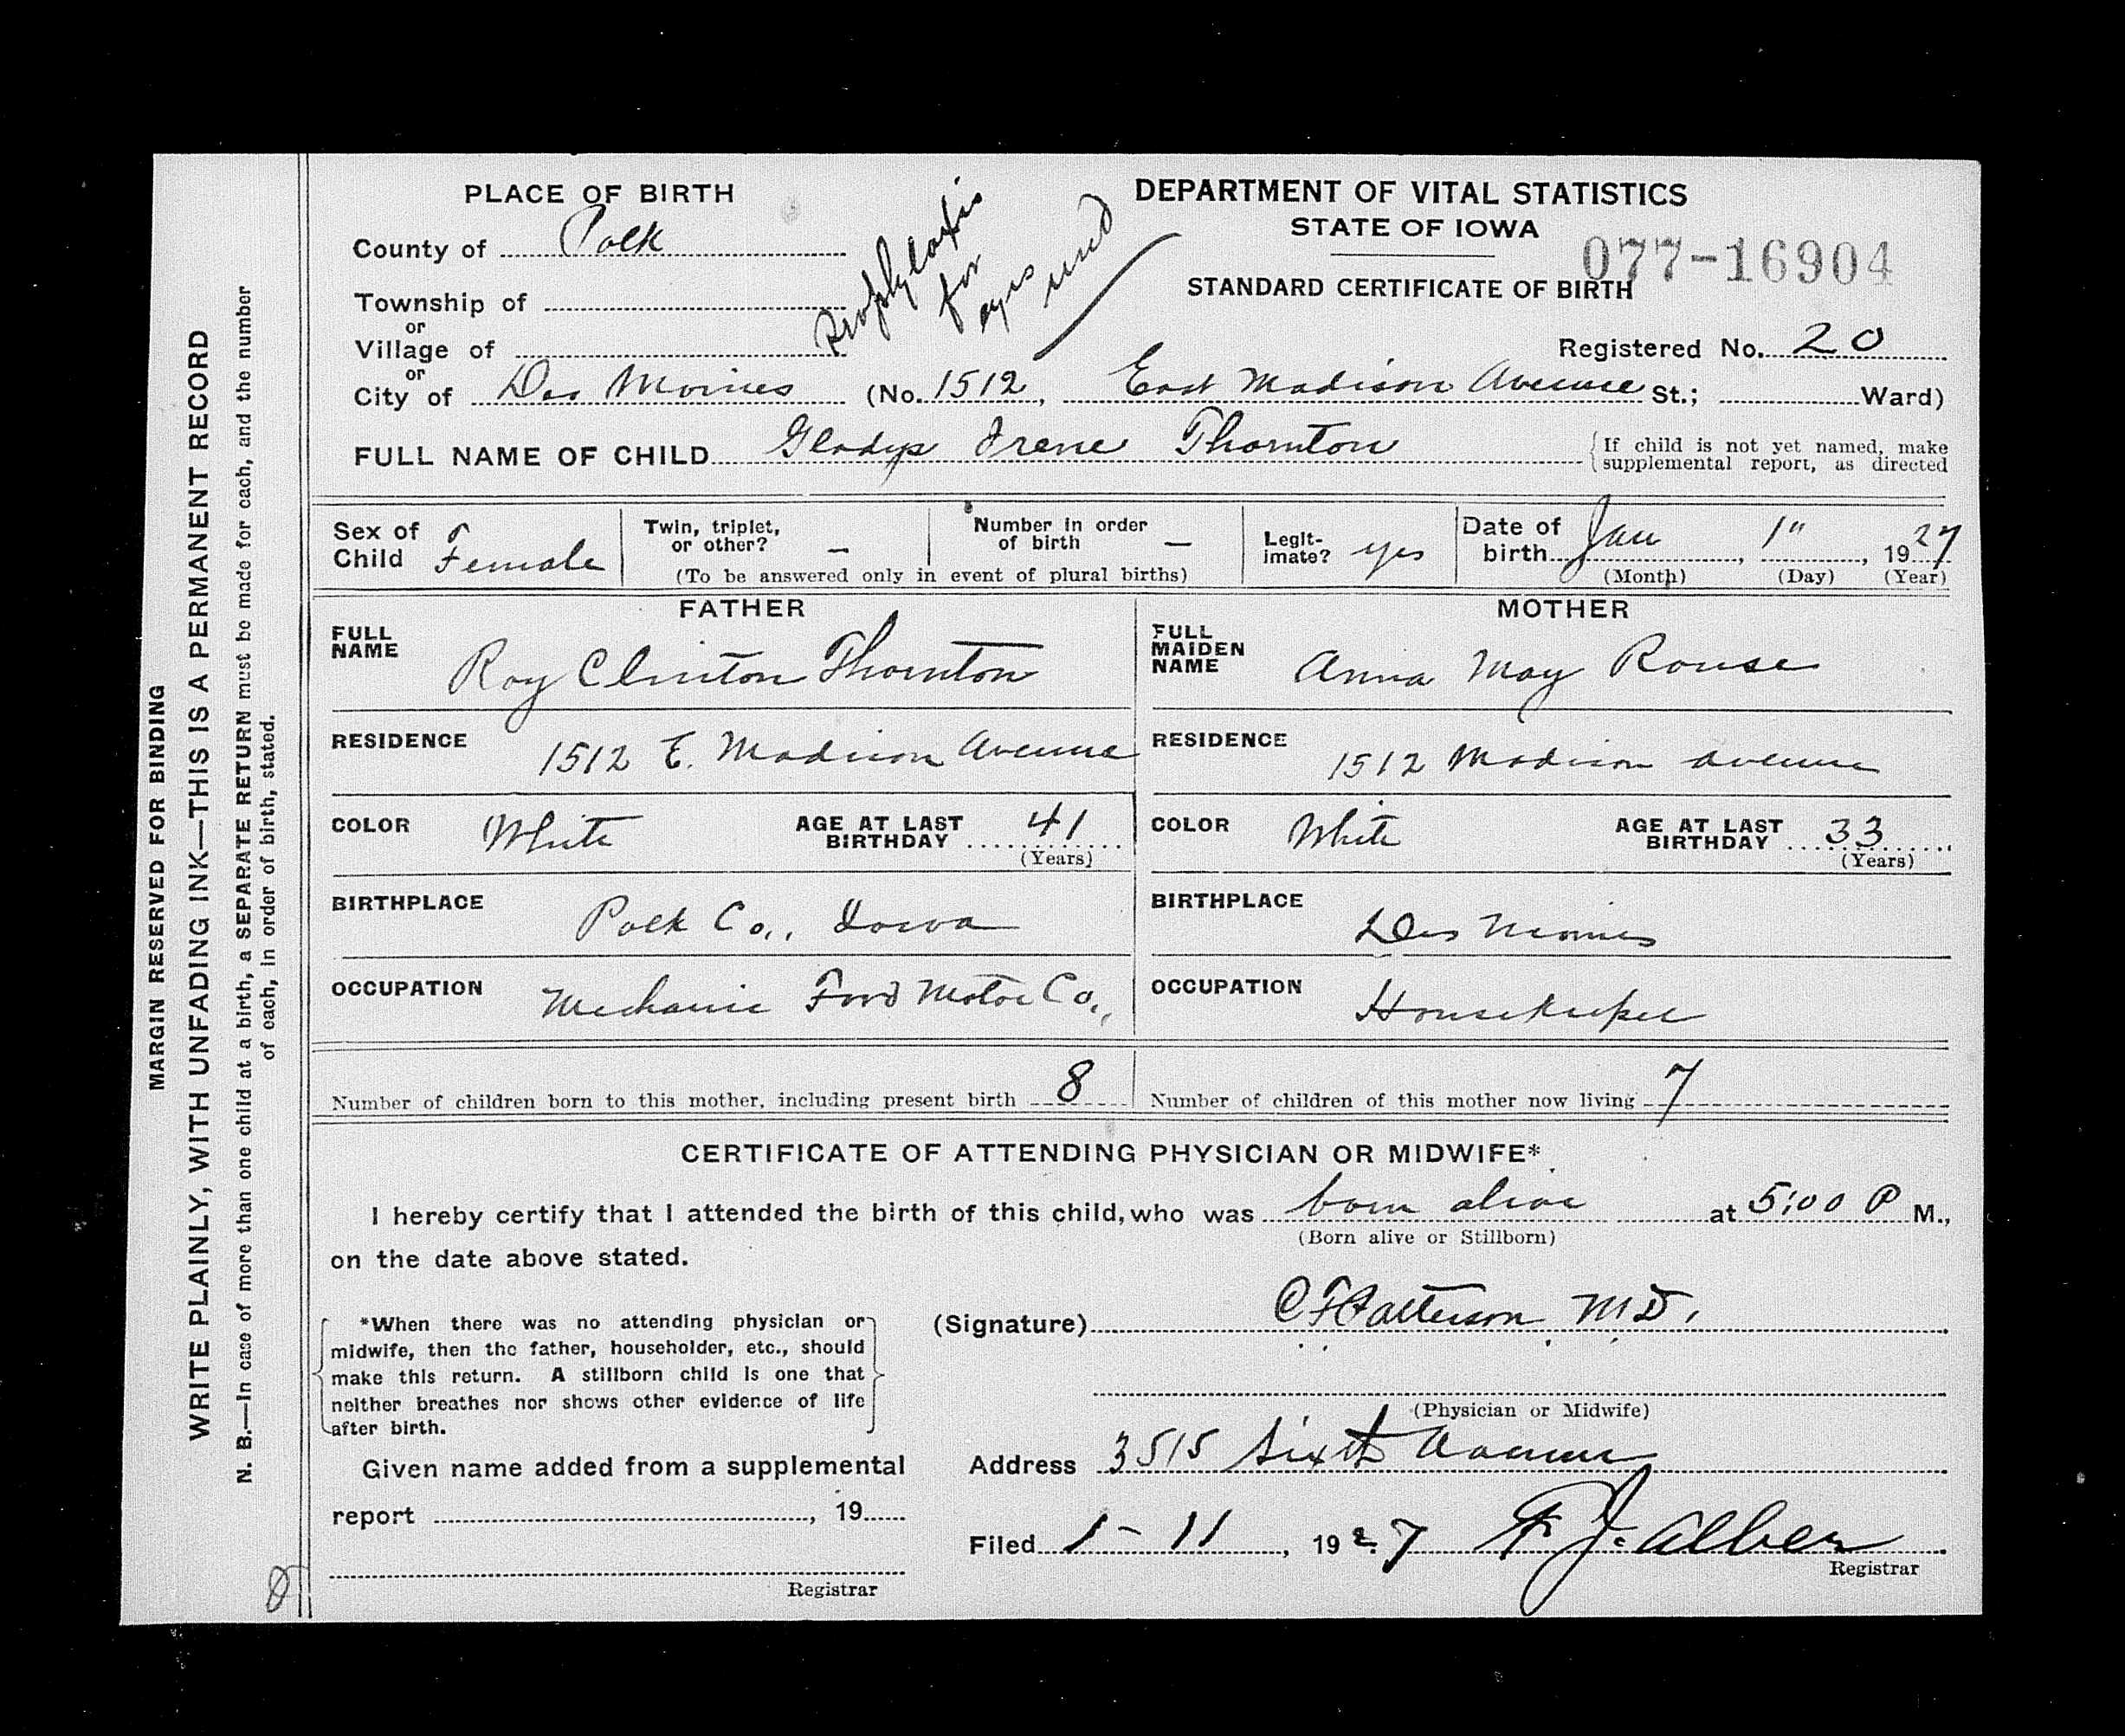 MARGIN RESERVED FOR BINDING
WRITE PLAINLY, WITH UNFADING INK—THIS IS A PERMANENT RECORD
N. B.—In case of more than one child at a birth, a SEPARATE RETURN must be made for each, and the number
of each, in order of birth, stated.
PLACE OF BIRTH
County of Polk
Township of
or
Village of
or
City of Des Moines (No. 1512, East Madison Avenue St.; Ward)
Prophylaxis
for
eyes used
DEPARTMENT OF VITAL STATISTICS
STATE OF IOWA
077-16904
STANDARD CERTIFICATE OF BIRTH
Registered No. 20
FULL NAME OF CHILD Gladys Irene Thornton
If child is not yet named, make
supplemental report, as directed
Sex of Child Female
Twin, triplet, or other? —
Number in order of birth —
(To be answered only in event of plural births)
Legitimate? yes
Date of birth Jan 1", 1927
(Month) (Day) (Year)
FATHER
FULL NAME Roy Clinton Thornton
RESIDENCE 1512 E. Madison Avenue
COLOR White AGE AT LAST BIRTHDAY 41 (Years)
BIRTHPLACE Polk Co., Iowa
OCCUPATION Mechanic Ford Motor Co.,
MOTHER
FULL MAIDEN NAME Anna May Rouse
RESIDENCE 1512 Madison Avenue
COLOR White AGE AT LAST BIRTHDAY 33 (Years)
BIRTHPLACE Des Moines
OCCUPATION Housekeeper
Number of children born to this mother, including present birth 8
Number of children of this mother now living 7
CERTIFICATE OF ATTENDING PHYSICIAN OR MIDWIFE*
I hereby certify that I attended the birth of this child, who was born alive at 5:00 P M.,
(Born alive or Stillborn)
on the date above stated.
*When there was no attending physician or
midwife, then the father, householder, etc., should
make this return. A stillborn child is one that
neither breathes nor shows other evidence of life
after birth.
(Signature) C F Patterson M.D.
(Physician or Midwife)
Given name added from a supplemental
report , 19
Registrar
Address 3515 Sixth Avenue
Filed 1-11, 1927 F. J. Alber
Registrar